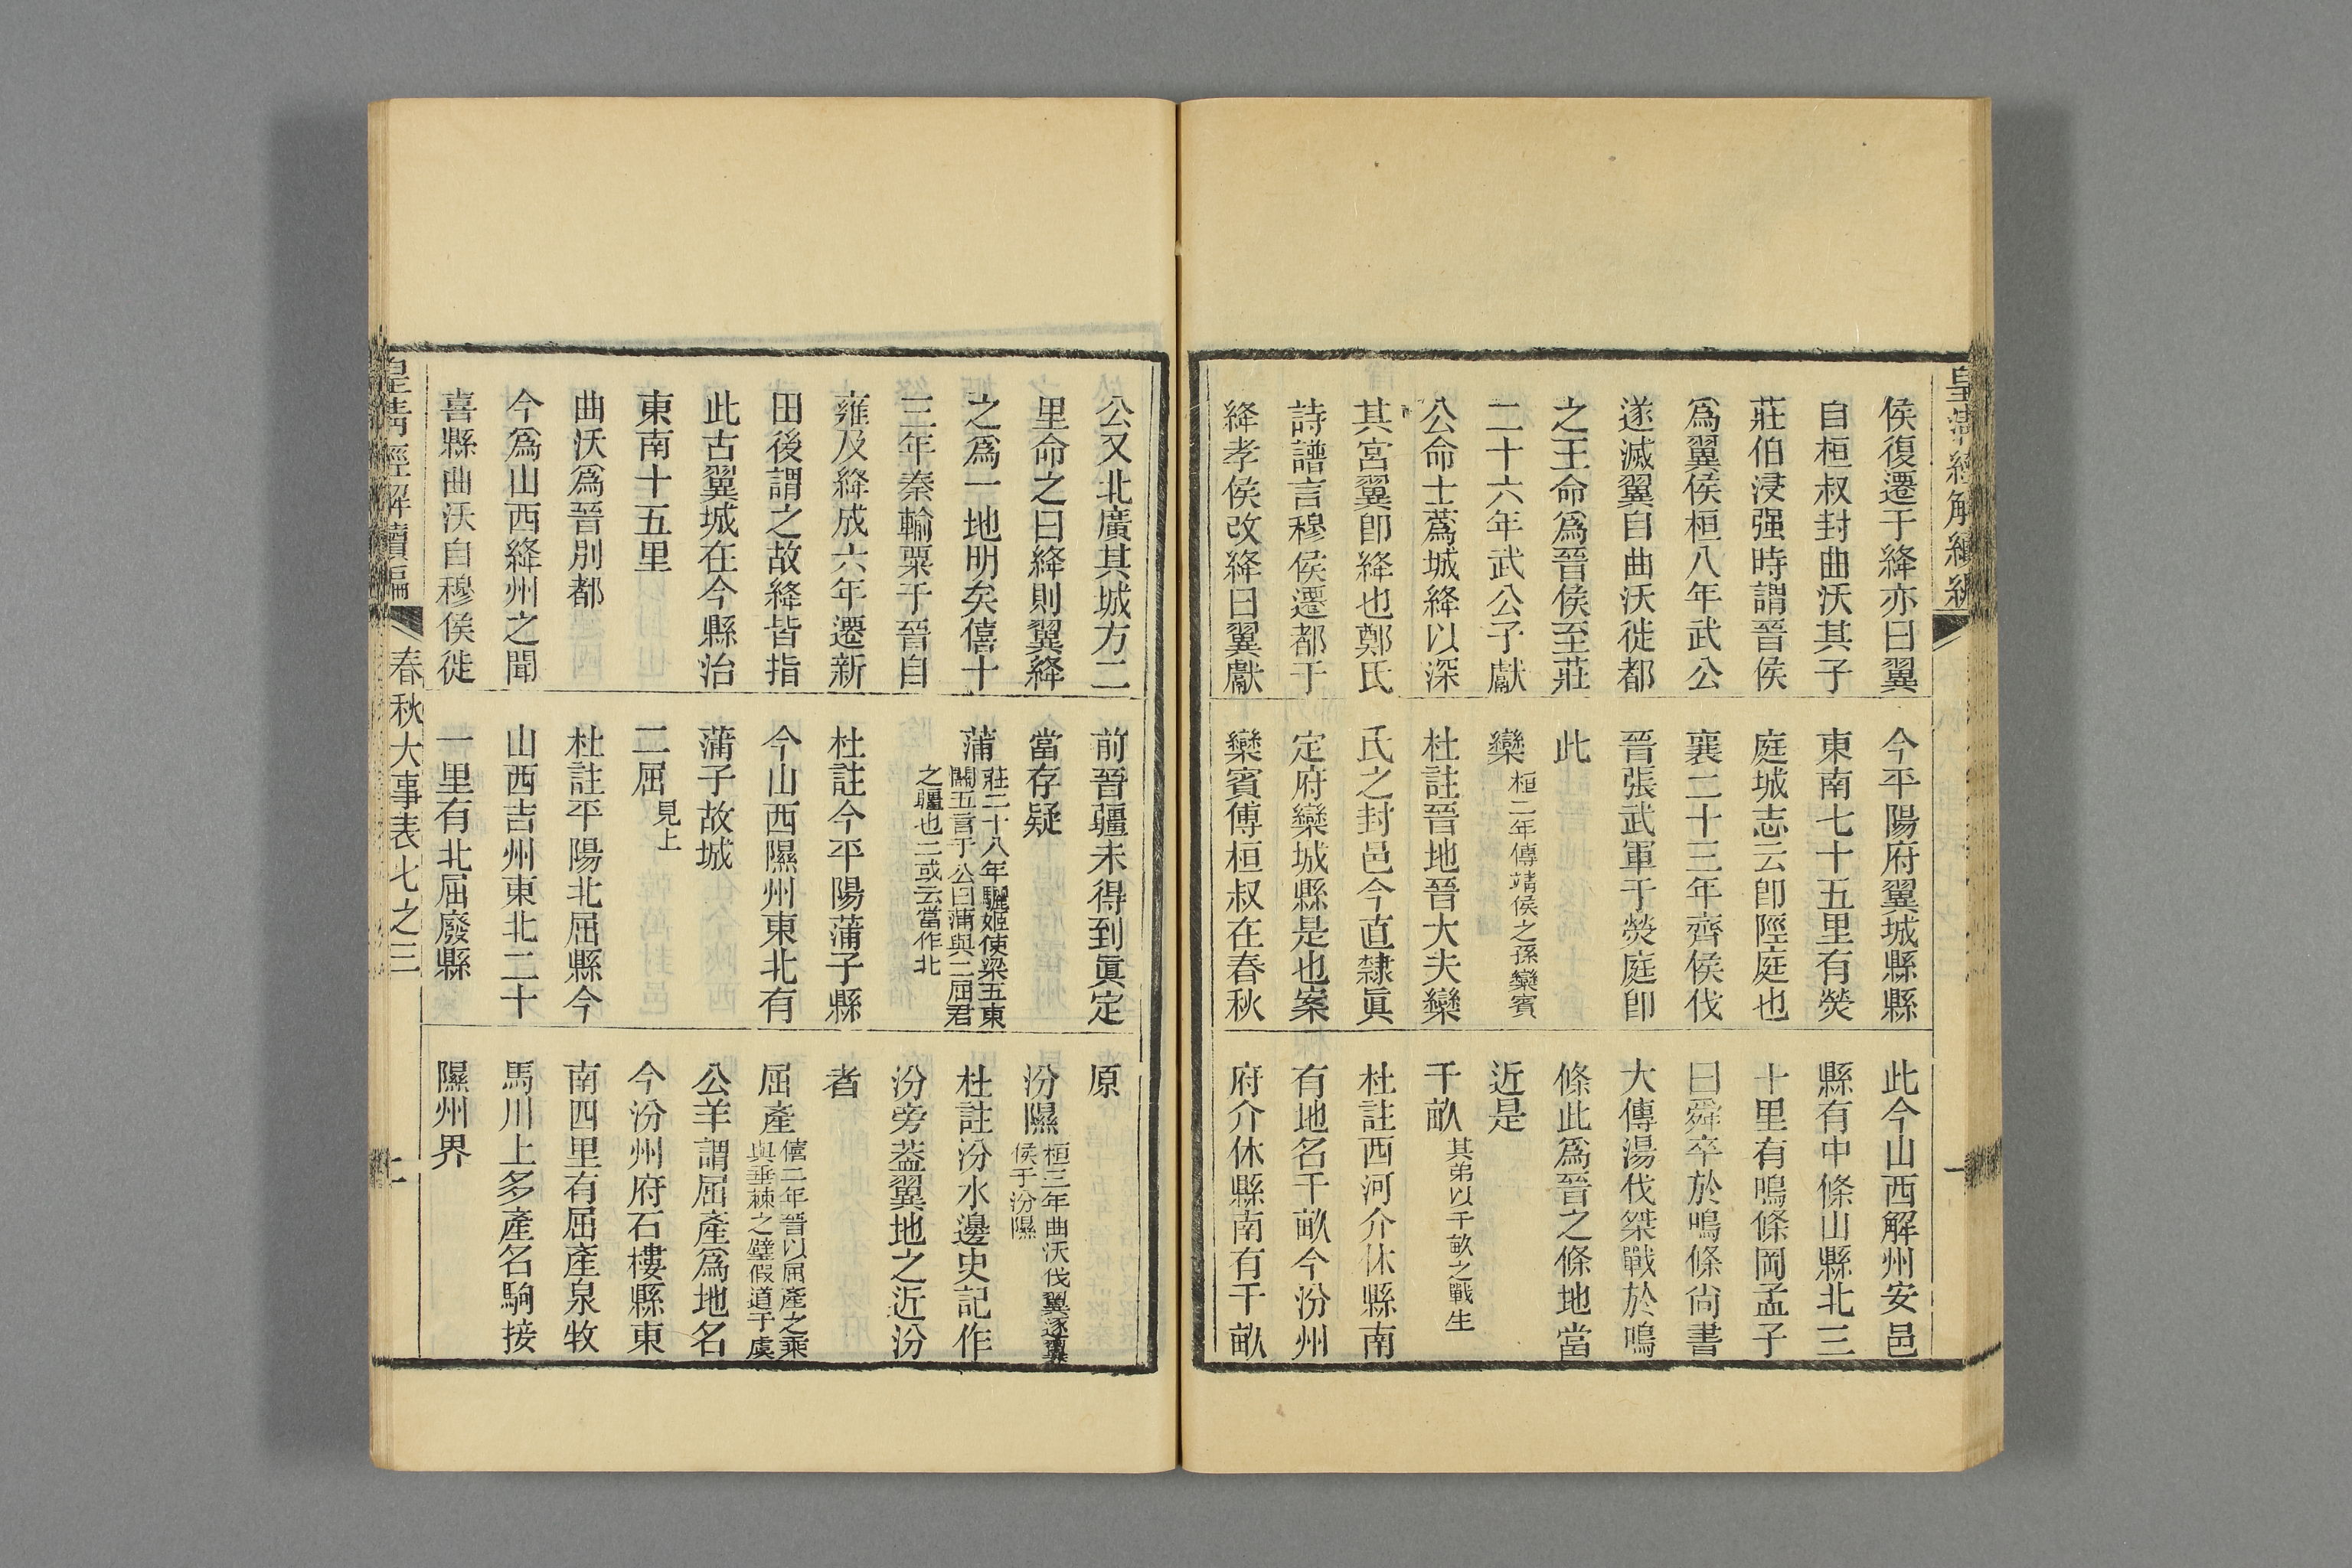 侯復遷于絳亦曰翼
自桓叔封曲沃其子
莊伯浸强時謂晉侯
爲翼侯桓八年武公
遂滅翼自曲沃徙都
之王命爲晉侯至莊
二十六年武公子獻
公命士蔿城絳以深
其宮翼卽絳也鄭氏
詩譜言穆侯遷都于
絳孝侯改絳曰翼獻
今平陽府翼城縣縣
東南七十五里有熒
庭城志云卽陘庭也
襄二十三年齊侯伐
晉張武軍于熒庭卽
此
欒桓二年傳靖侯之孫欒賓
杜註晉地晉大夫欒
氏之封邑今直隸眞
定府欒城縣是也案
欒賓傅桓叔在春秋
此今山西解州安邑
縣有中條山縣北三
十里有鳴條岡孟子
曰舜卒於鳴條尙書
大傳湯伐桀戰於鳴
條此爲晉之條地當
近是
千畝其弟以千畝之戰生
杜註西河介休縣南
有地名千畝今汾州
府介休縣南有千畝
公又北廣其城方二
里命之曰絳則翼絳
之爲一地明矣僖十
三年秦輸粟于晉自
雍及絳成六年遷新
田後謂之故絳皆指
此古翼城在今縣治
東南十五里
曲沃爲晉別都
今爲山西絳州之聞
喜縣曲沃自穆侯徙
前晉疆未得到眞定
當存疑
蒲莊二十八年驪姬使梁五東
關五言于公曰蒲與二屈君
之疆也二或云當作北
杜註今平陽蒲子縣
今山西隰州東北有
蒲子故城
二屈見上
杜註平陽北屈縣今
山西吉州東北二十
一里有北屈廢縣
原
汾隰桓三年曲沃伐翼逐翼
侯于汾隰
杜註汾水邊史記作
汾旁葢翼地之近汾
者
屈產僖二年晉以屈產之乘
與垂棘之璧假道于虞
公羊謂屈產爲地名
今汾州府石樓縣東
南四里有屈產泉牧
馬川上多產名駒接
隰州界
皇清經解續編
春秋大事表七之三